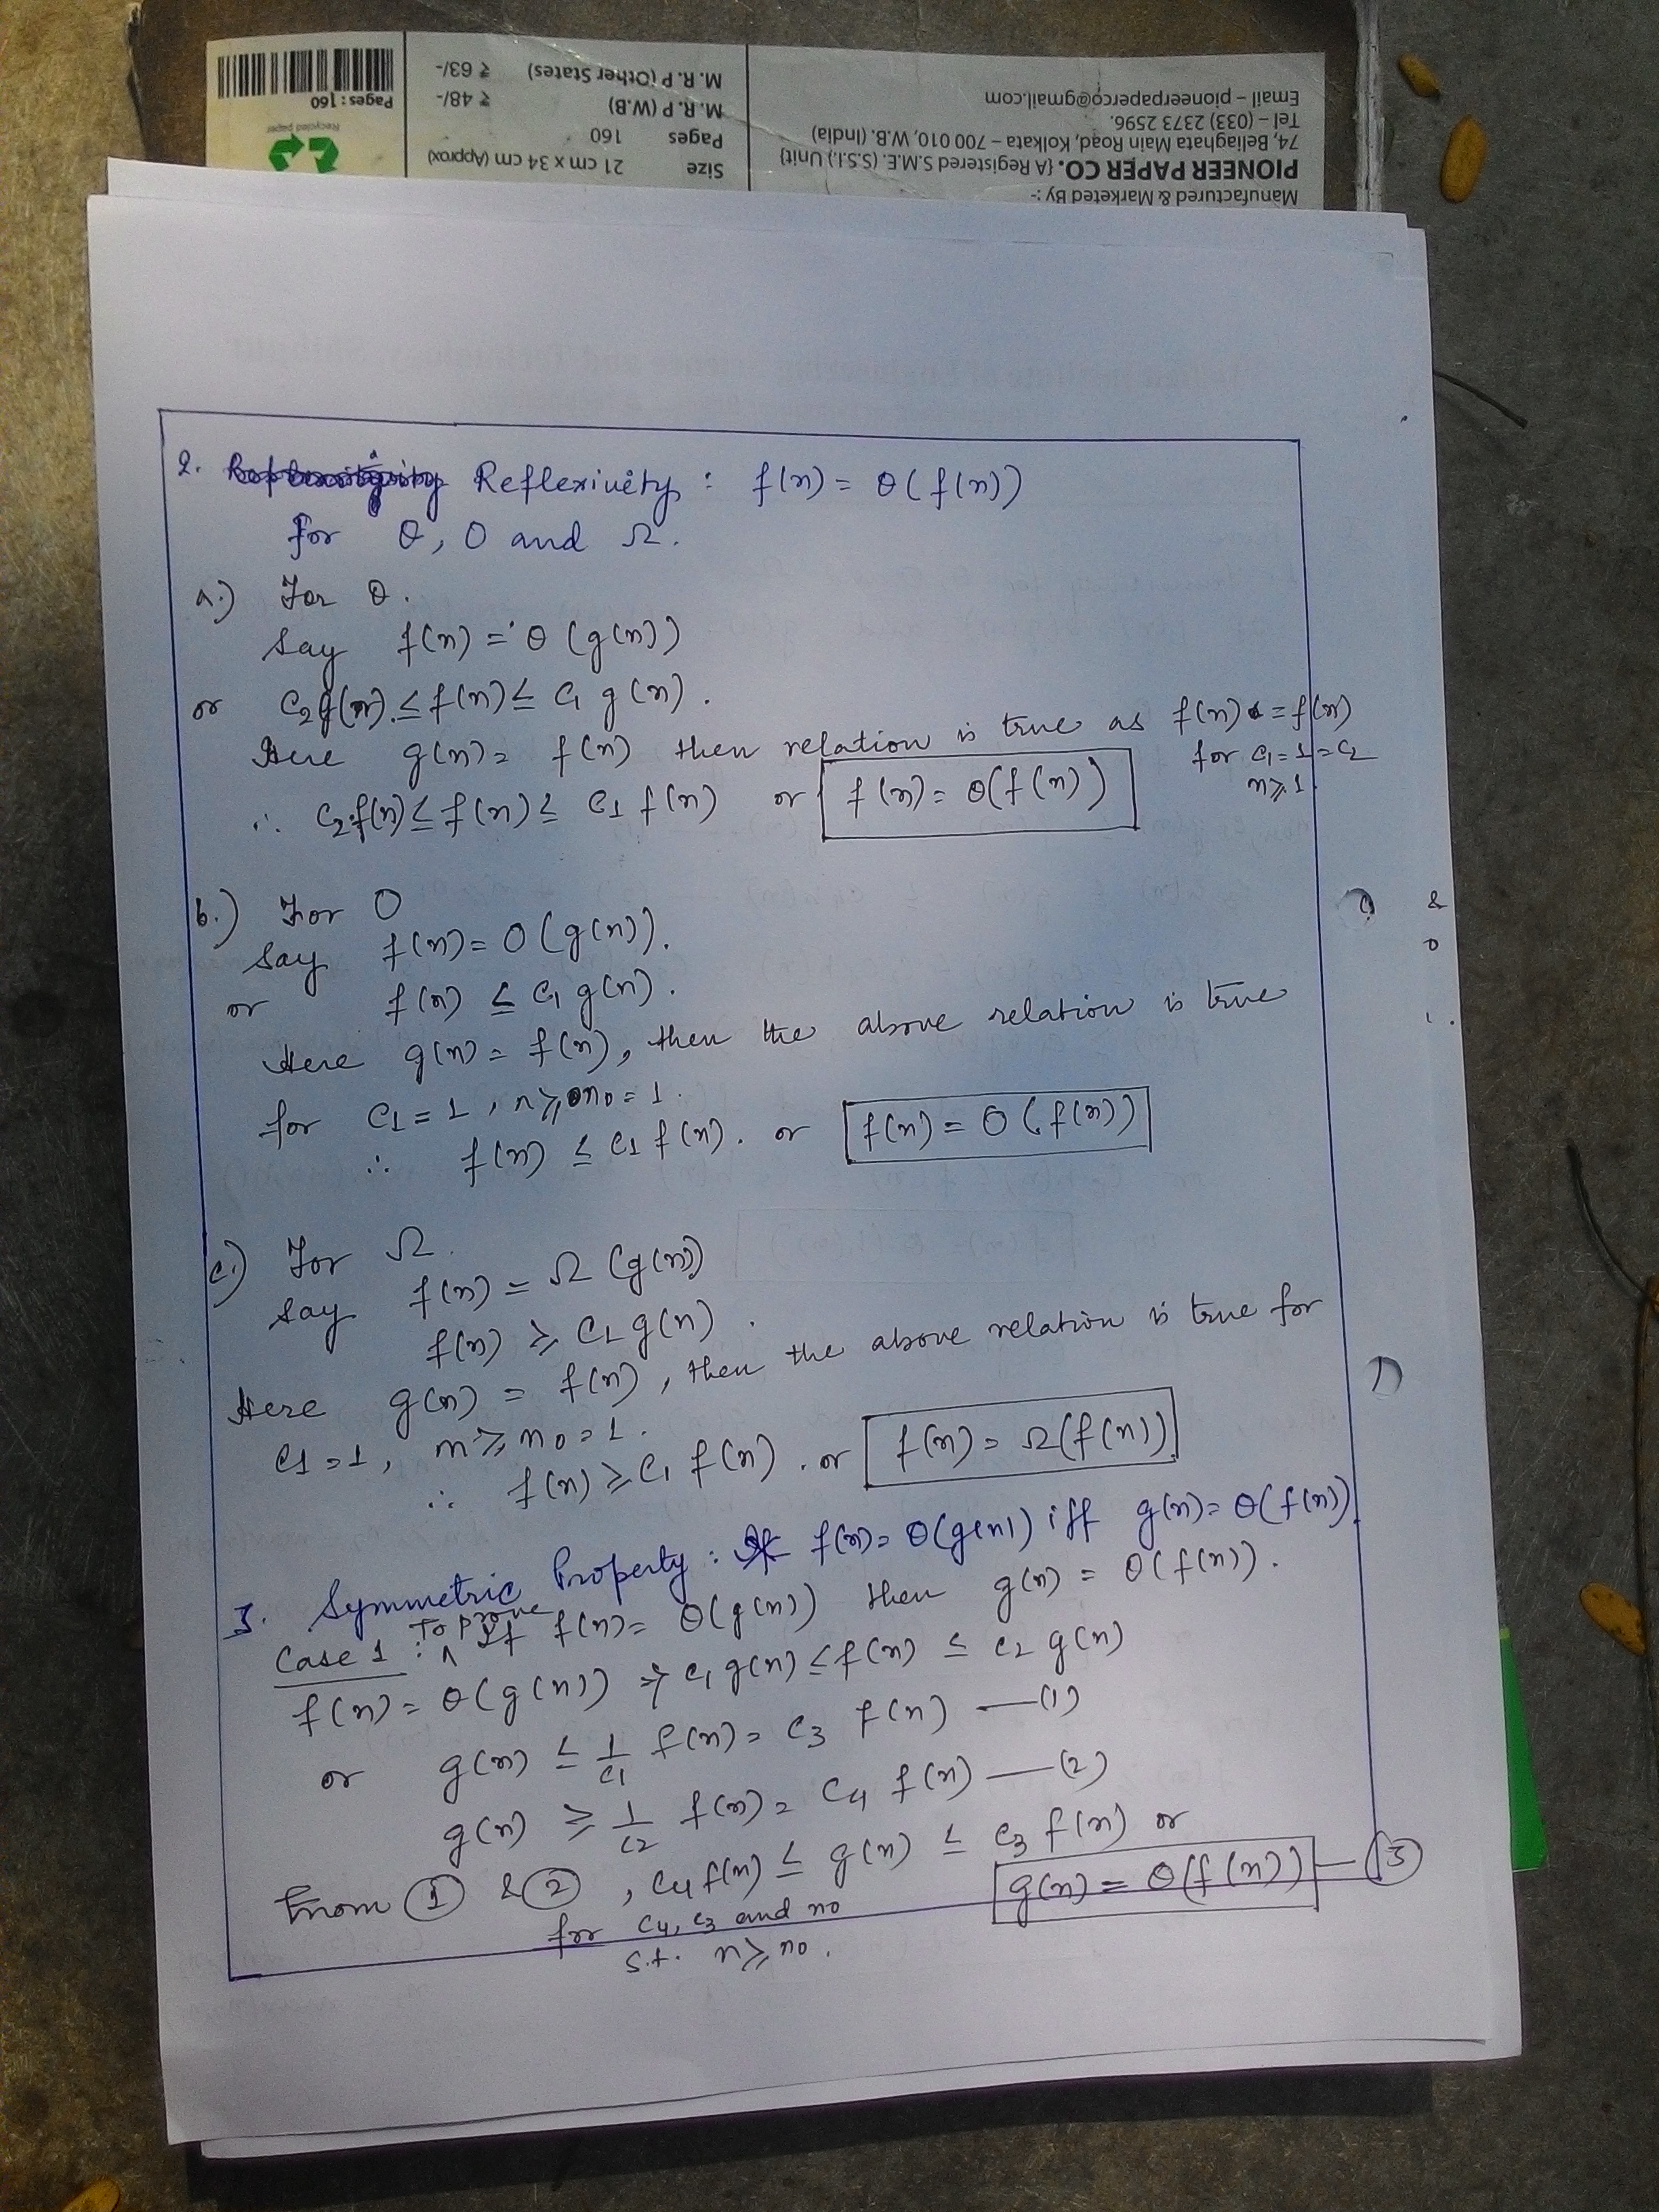 2. Reflexivity : f(n) = θ(f(n))
for θ, O and Ω.
a.) For θ.
say f(n) = θ(g(n))
or C₂g(n) ≤ f(n) ≤ C₁ g(n).
Here g(n) = f(n) then relation is true as f(n) = f(n)
for C₁=1=C₂
n≥1.
∴ C₂f(n) ≤ f(n) ≤ C₁ f(n) or f(n) = θ(f(n))
b.) For O
say f(n) = O(g(n)).
or f(n) ≤ C₁ g(n).
Here g(n) = f(n), then the above relation is true
for C₁ = 1, n ≥ n₀ = 1.
∴ f(n) ≤ C₁ f(n). or f(n) = O(f(n))
c.) For Ω.
say f(n) = Ω(g(n))
f(n) ≥ C₁ g(n).
Here g(n) = f(n), then the above relation is true for
C₁ = 1, n ≥ n₀ = 1.
∴ f(n) ≥ C₁ f(n). or f(n) = Ω(f(n))
3. Symmetric Property : f(n) = θ(g(n)) iff g(n) = θ(f(n))
Case 1 : To prove if f(n) = θ(g(n)) then g(n) = θ(f(n)).
f(n) = θ(g(n)) ⇒ C₁ g(n) ≤ f(n) ≤ C₂ g(n)
or g(n) ≤ 1/C₁ f(n) = C₃ f(n) —(1)
g(n) ≥ 1/C₂ f(n) = C₄ f(n) —(2)
From ① & ② , C₄ f(n) ≤ g(n) ≤ C₃ f(n) or g(n) = θ(f(n)) —③
for C₄, C₃ and n₀
s.t. n ≥ n₀.
Manufactured & Marketed By :-
PIONEER PAPER CO. {A Registered S.M.E. (S.S.I.) Unit}
74, Beliaghata Main Road, Kolkata – 700 010, W.B. (India)
Tel – (033) 2373 2596.
Email – pioneerpaperco@gmail.com
Size 21 cm x 34 cm (Approx)
Pages 160
M. R. P (W.B) ₹ 48/-
M. R. P (Other States) ₹ 63/-
Recycled paper
Pages : 160